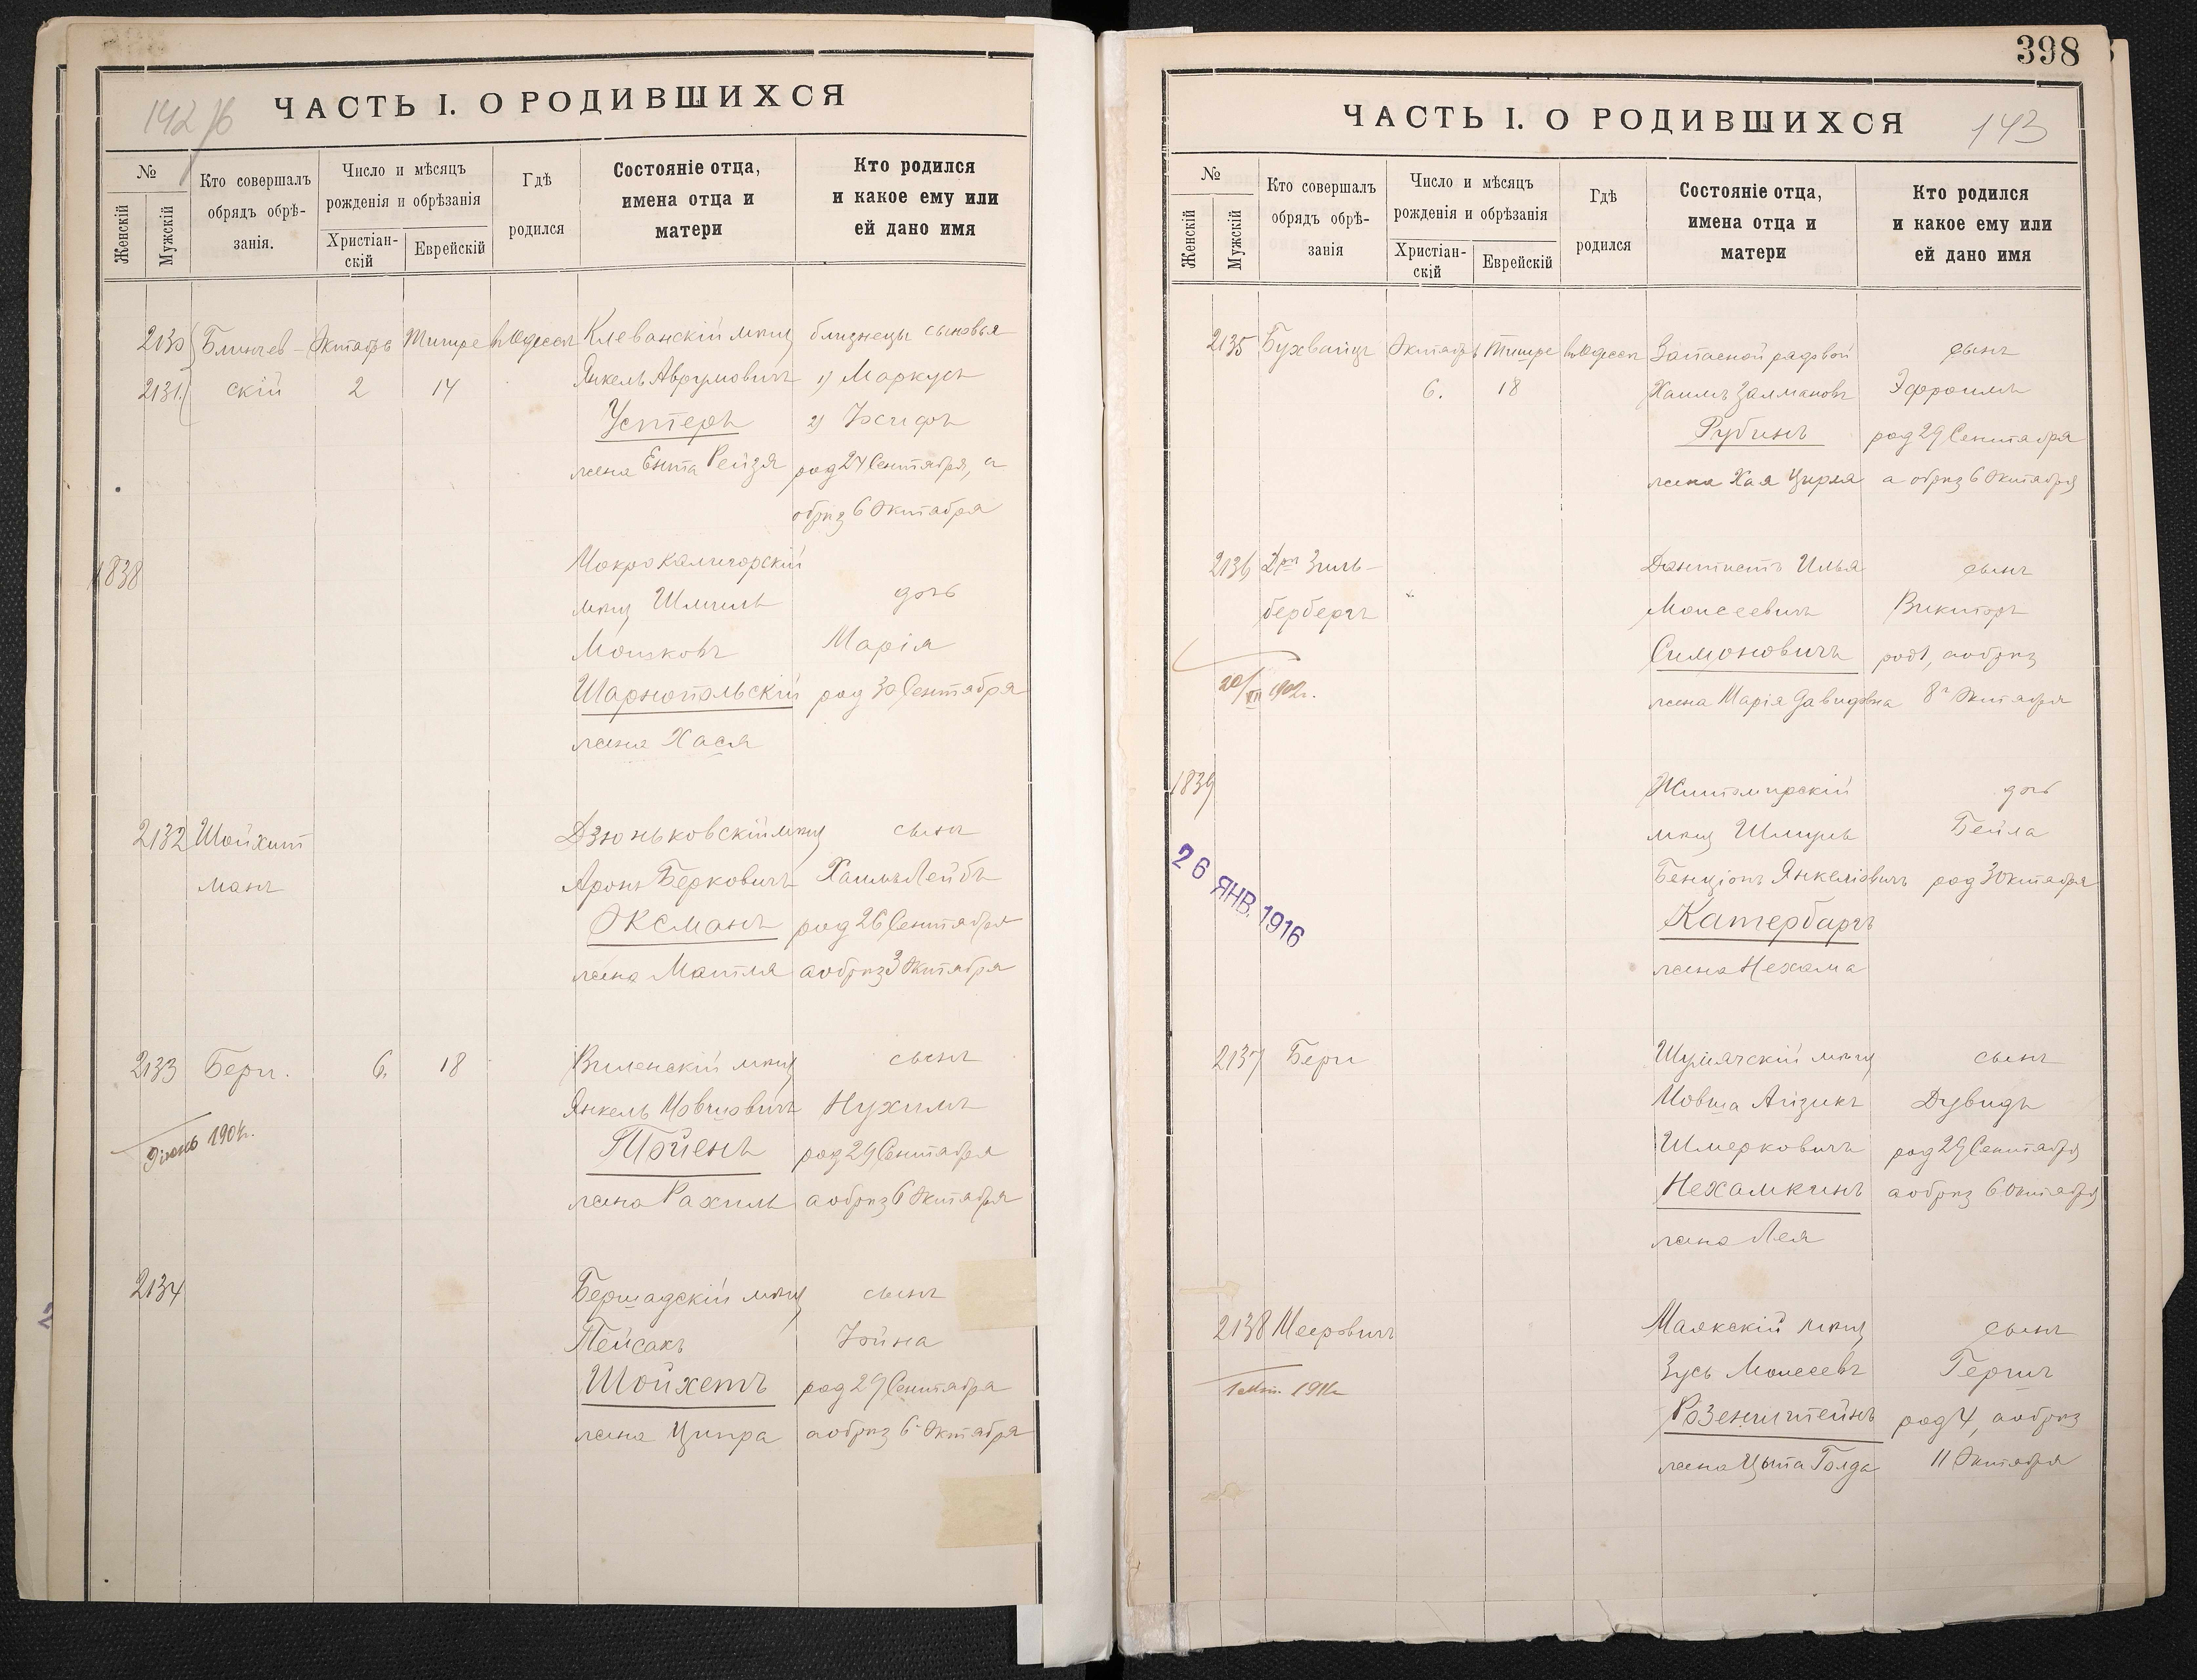 142 об
ЧАСТЬ I. О РОДИВШИХСЯ
№
Женскій
Мужскій
Кто совершалъ
обрядъ обрѣ-
занія.
Число и мѣсяцъ
рожденія и обрѣзанія
Христіан-
скій
Еврейскій
Гдѣ
родился
Состояніе отца,
имена отца и
матери
Кто родился
и какое ему или
ей дано имя
2130 Блинчев- Октябрь Тишре въ Одессѣ Клеванскій мѣщ близнецы сыновья
2131 скій 2 14 Янкель Аврумовичъ 1) Маркусъ
Устеръ 2) Іосифъ
жена Ента Рейзя род 24 Сентября, а
обрѣз 6 Октября
1838 Мокрокалигорскій
мѣщ Шмиль дочь
Мошковъ Марія
Шарнопольскій род 30 Сентября
жена Хася
2132 Шойхит Дзюньковскій мѣщ сынъ
манъ Аронъ Берковичъ Хаимъ Лейбъ
Оксманъ род 26 Сентября
жена Матля а обрѣз 3 Октября
2133 Бери. 6. 18 Виленскій мѣщ сынъ
Янкель Мовшовичъ Нухимъ
Іюнь 1904г. Пойенъ род 29 Сентября
жена Рахиль а обрѣз 6 Октября
2134 Бершадскій мѣщ сынъ
Пейсахъ Іойна
Шойхетъ род 29 Сентября
жена Ципра а обрѣз 6 Октября
398
ЧАСТЬ I. О РОДИВШИХСЯ 143
№
Женскій
Мужскій
Кто совершалъ
обрядъ обрѣ-
занія
Число и мѣсяцъ
рожденія и обрѣзанія
Христіан-
скій
Еврейскій
Гдѣ
родился
Состояніе отца,
имена отца и
матери
Кто родился
и какое ему или
ей дано имя
2135 Бухвайцъ Октябрь Тишре въ Одессѣ Запасной рядовой сынъ
6. 18 Хаимъ Залмановъ Эфроимъ
Рубинъ род 29 Сентября
жена Хая Цирля а обрѣз 6 Октября
2136 Д-ръ Зиль- Дантистъ Илья сынъ
бербергъ Моисеевичъ Викторъ
Симоновичъ род 1, а обрѣз
20/XII 1902г. жена Марія Давидовна 8 Октября
1839 Житомирскій дочь
мѣщ Шмуль Бейла
26 ЯНВ. 1916
Бенціонъ Янкелiовичъ род 3 Октября
Катербаргъ
жена Нехама
2137 Бери Шумячскій мѣщ сынъ
Мовша Айзикъ Дувидъ
Шмерковичъ род 29 Сентября
Нехамкинъ а обрѣз 6 Октября
жена Лея
2138 Мееровичъ Маякскій мѣщ сынъ
Зусь Моисеевъ Гершъ
1911г Розенштейнъ род 4, а обрѣз
жена Цыпа Голда 11 Октября